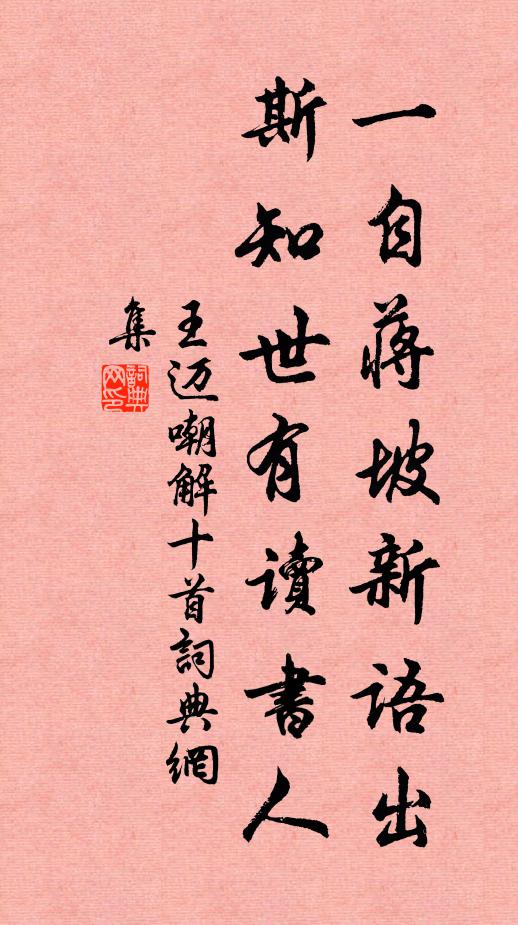 一自蒋坡新语出
斯知世有读書人
王迈嘲解十首詞典網
集
詞典
网印